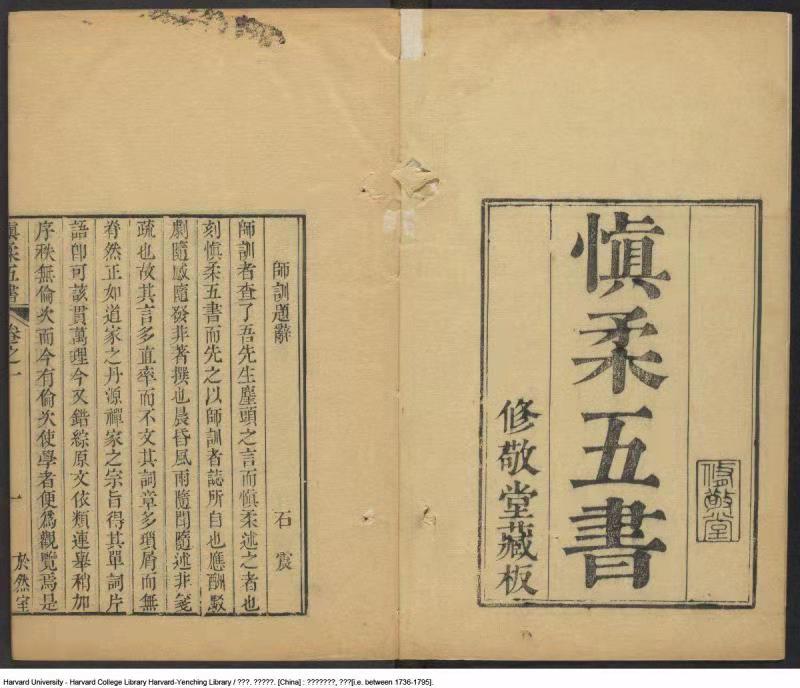 慎柔五書
修敬堂藏板
修敬堂
師訓題辭
石震
師訓者查了吾先生麈頭之言而慎柔述之者也
刻慎柔五書而先之以師訓者誌所自也應酬駁
劇隨感隨發非著撰也晨昏風雨隨問隨述非箋
疏也故其言多直率而不文其詞章多瑣屑而無
脊然正如道家之丹源禪家之宗旨得其單詞片
語卽可該貫萬理今又錯綜原文依類連舉稍加
序秩無倫次而今有倫次使學者便爲觀覽焉是
慎柔五書
卷之一
一
於然室
Harvard University - Harvard College Library Harvard-Yenching Library / ???. ?????. [China] : ???????, ???[i.e. between 1736-1795].